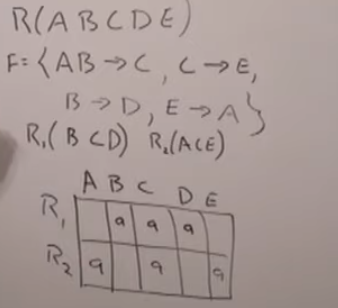 R(ABCDE)
F={AB→C, C→E,
B→D, E→A}
R₁(BCD) R₂(ACE)
A B C D E
R₁ a a a
R₂ a a a